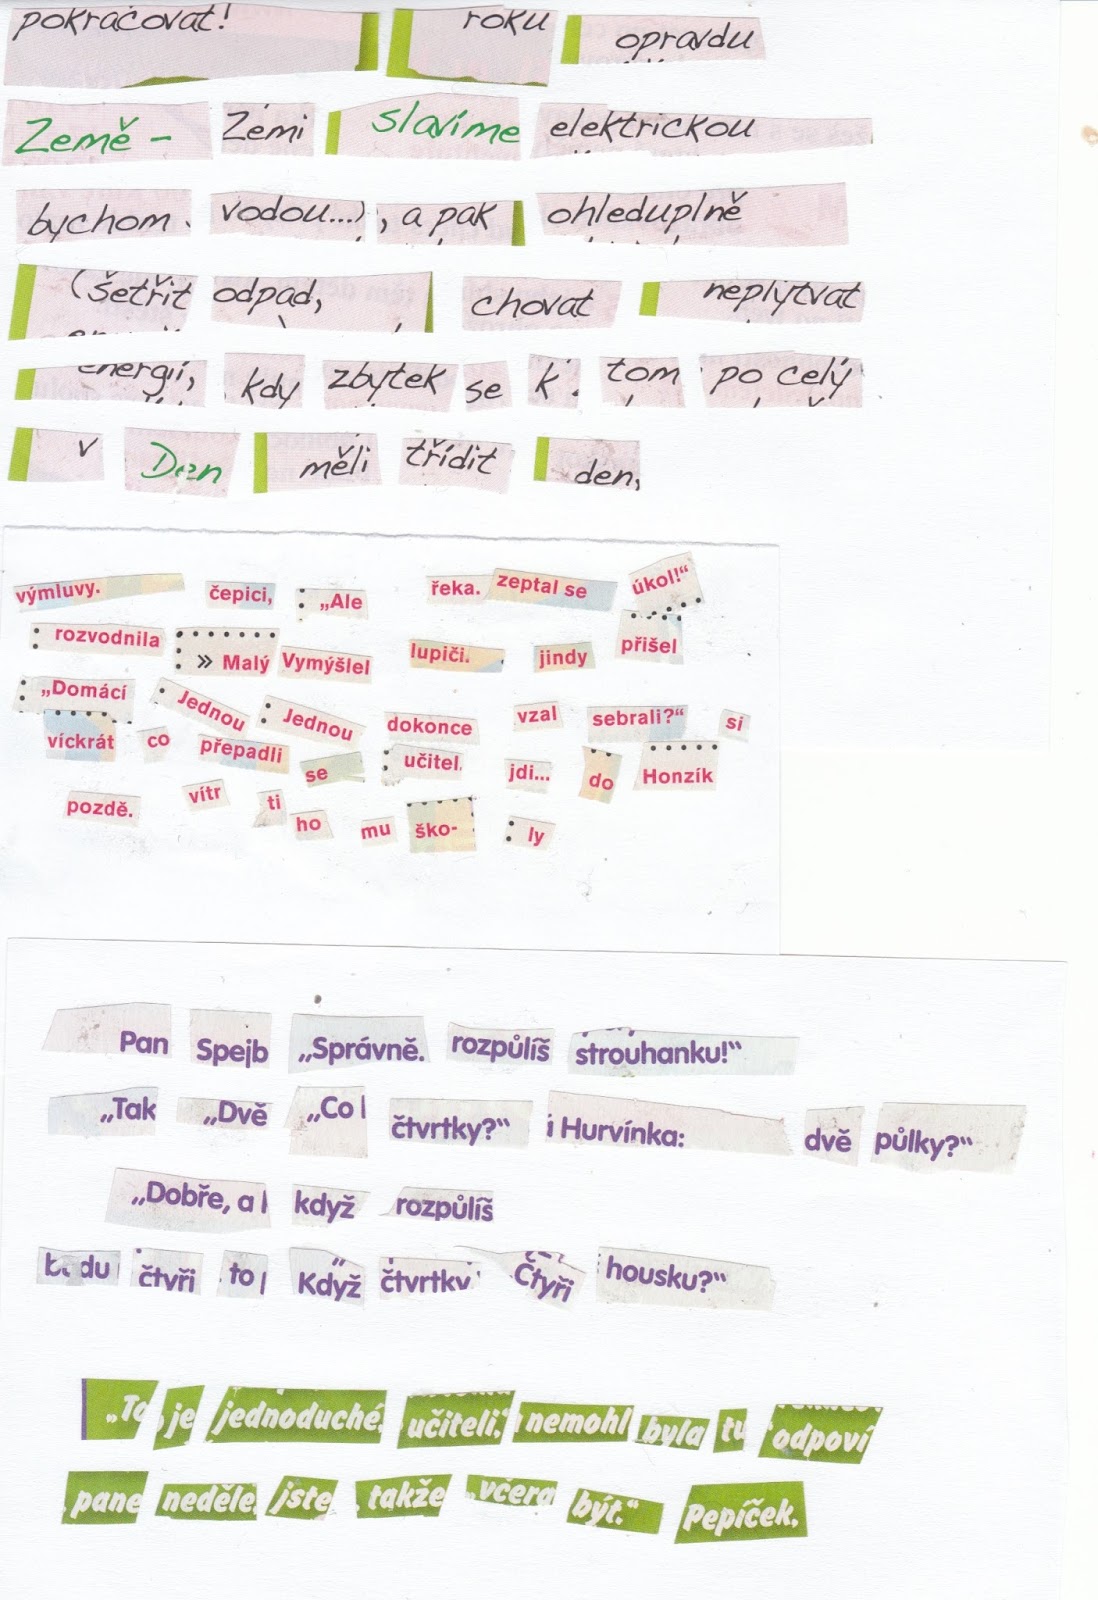 pokračovat! roku opravdu
Země - Zemi slavíme elektrickou
bychom vodou...), a pak ohleduplně
(šetřit odpad, chovat neplýtvat
energií, kdy zbytek se k tom po celý
v Den měli třídit den,
výmluvy. čepici, „Ale řeka. zeptal se úkol!“
rozvodnila » Malý Vymýšlel lupiči. jindy přišel
„Domácí Jednou Jednou dokonce vzal sebrali?“ si
víckrát co přepadli se učitel. jdi... do Honzík
pozdě. vítr ti ho mu ško- ly
Pan Spejb „Správně. rozpůlíš strouhanku!“
„Tak „Dvě „Co čtvrtky?“ i Hurvínka: dvě půlky?“
„Dobře, a když rozpůlíš
budu čtvři to Když čtvrtky Čtyři housku?“
„To je jednoduché, učiteli,“ nemohl byla tu odpoví
pane neděle, jste takže včera být.“ Pepíček,